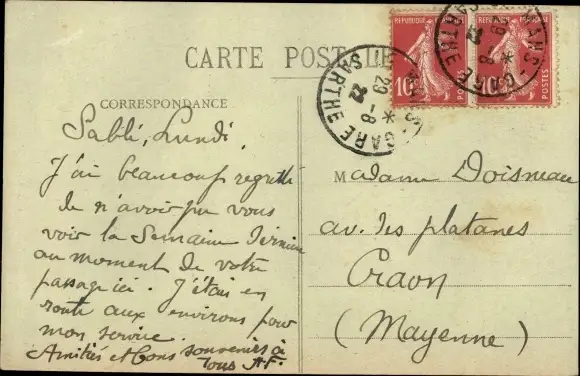 CARTE POSTALE
REPUBLIQUE FRANÇAISE
10c
POSTES
REPUBLIQUE FRANÇAISE
10c
POSTES
GARE
SARTHE
29 -8
22
GARE
SARTHE
29 -8
22
CORRESPONDANCE
Sablé, Lundi.
J'ai beaucoup regretté
de n'avoir pu vous
voir la Semaine dernière
au moment de votre
passage ici. J'étais en
route aux environs pour
mon service.
Amitiés et bons souvenirs à
tous AF.
Madame Doisneau
av. des platanes
Craon
(Mayenne)